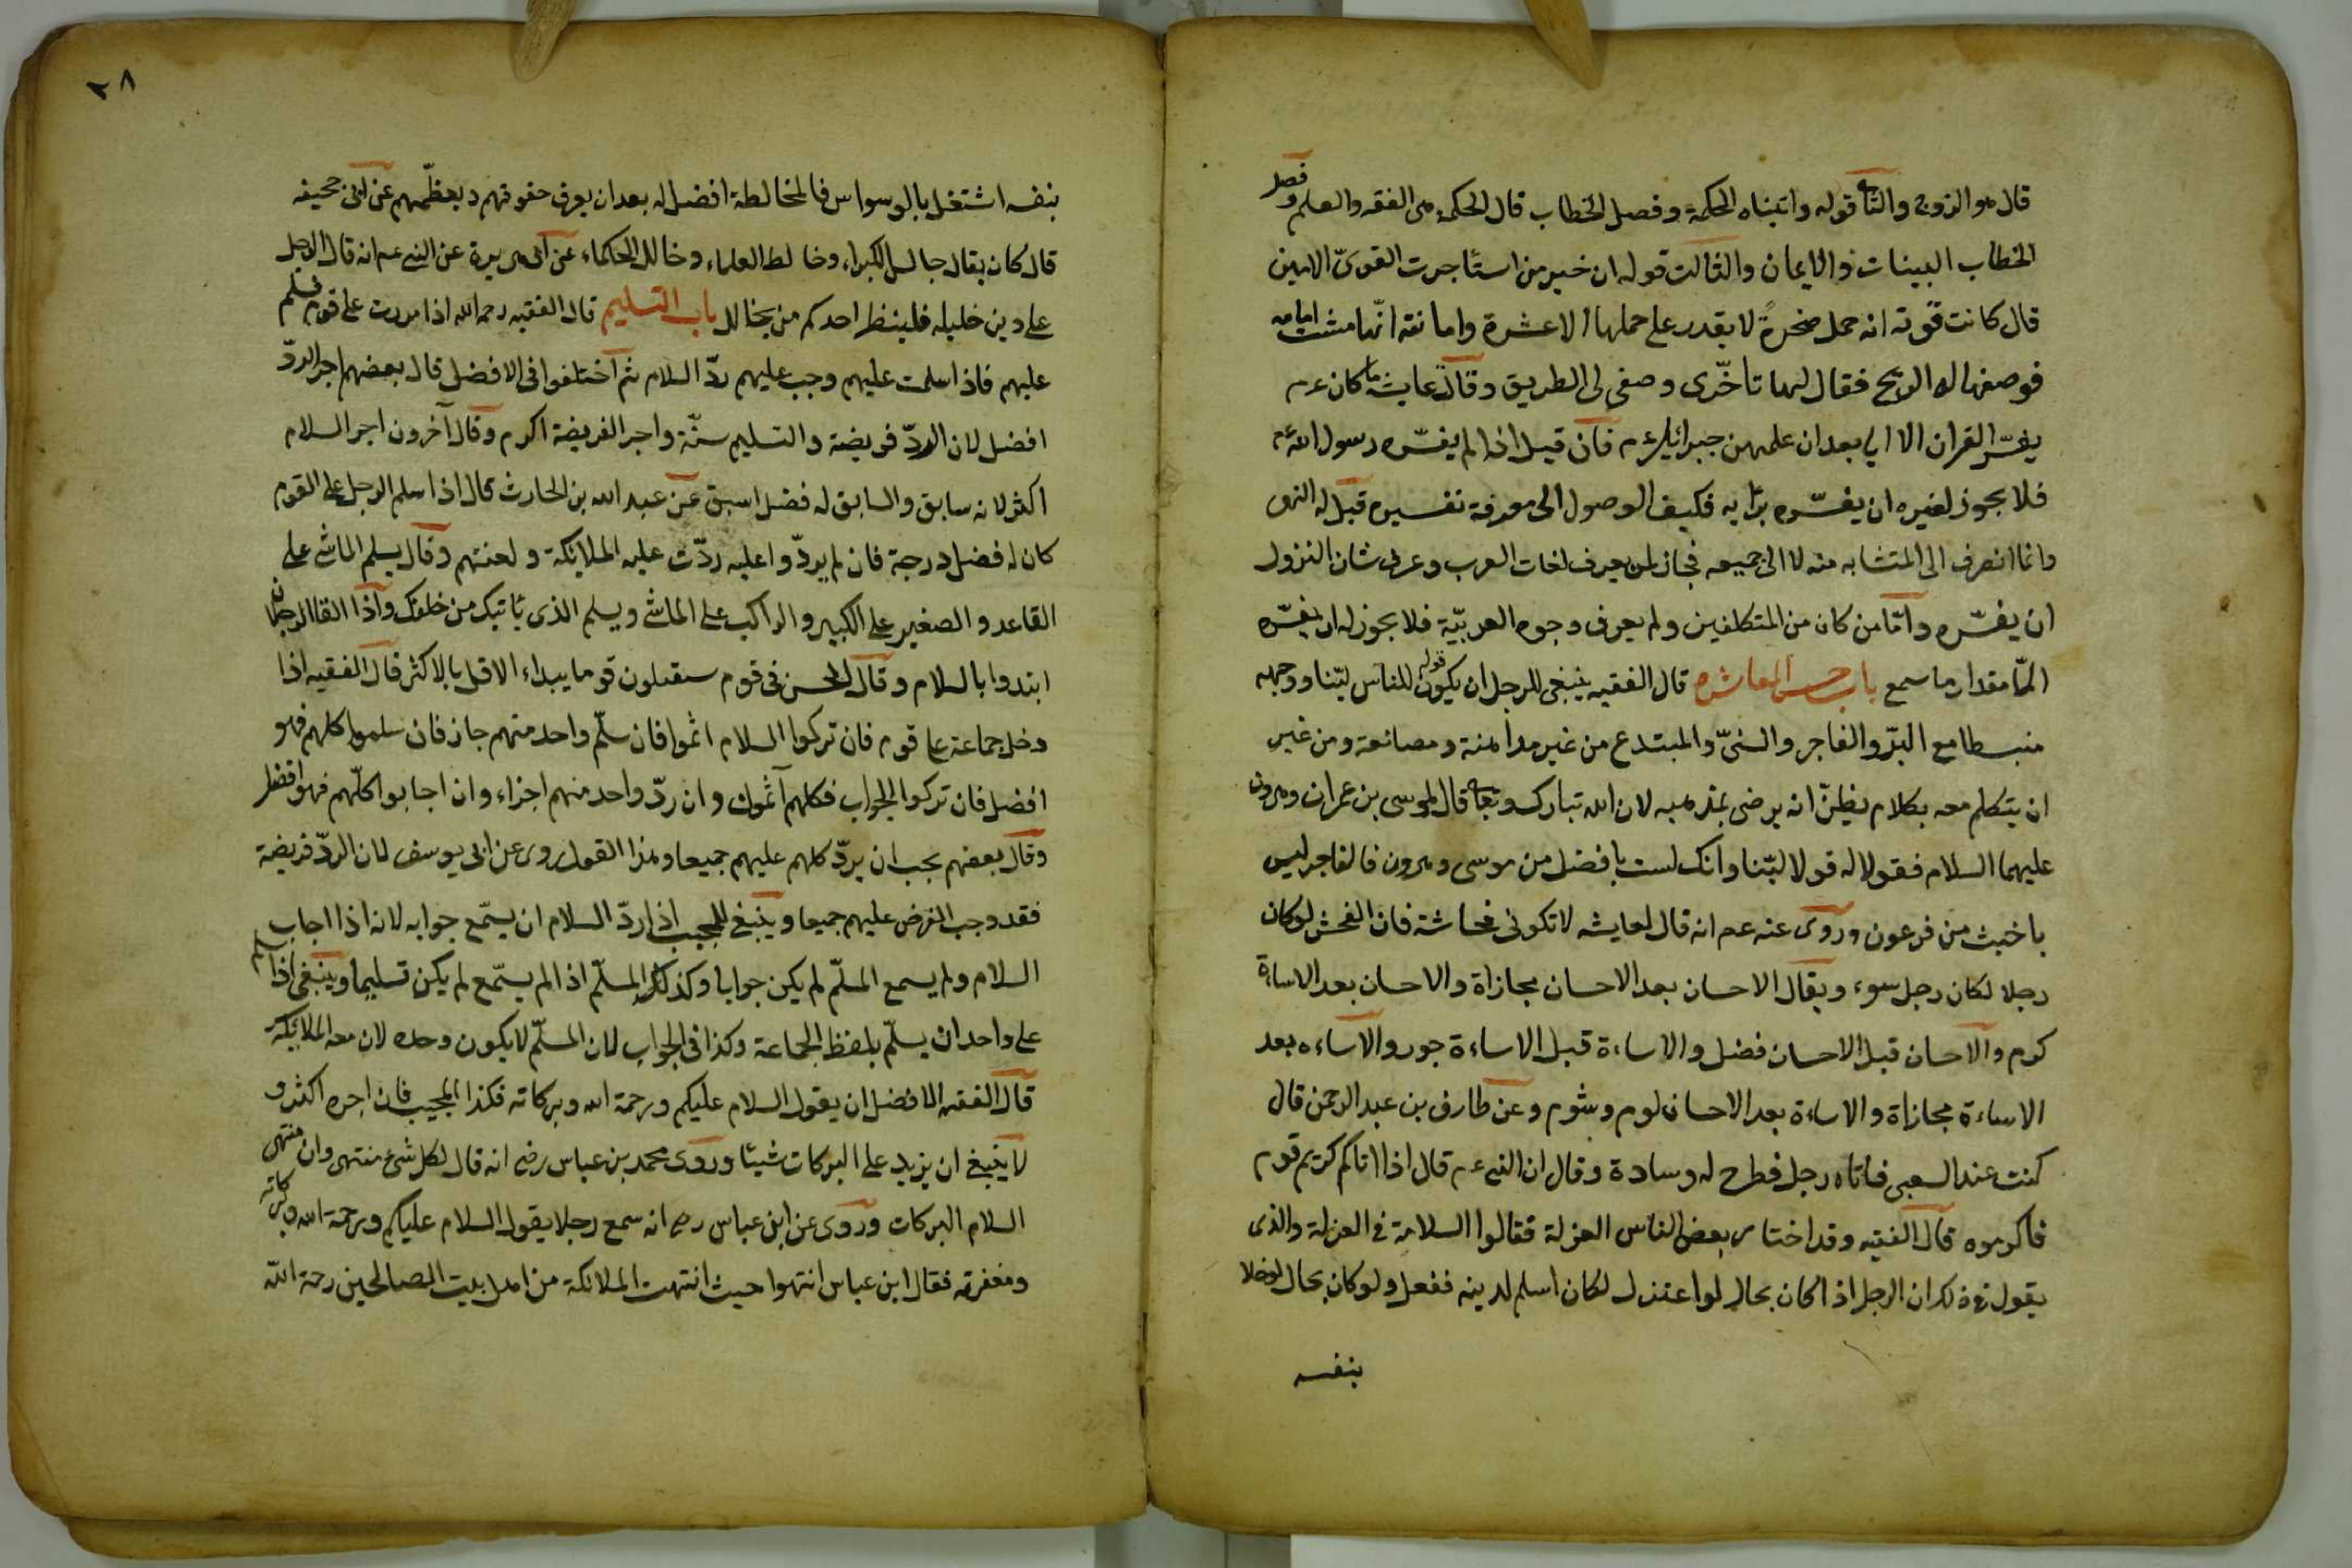 قال هو الزوج والثا قوله واتيناه الحكمة وفصل الخطاب قال الحكمة هى الفقه والعلم وفصل
الخطاب البينات والايمان والثالث قوله ان خير من استأجرت القوىّ الامين
قال كانت قوّته انه حمل صخرةً لا يقدر على حملها الا عشرة وامانته انّها مشت امامه
فوصفها له الريح فقال لها تأخّرى وصفى لى الطريق وقالت عايشة ما كان عم
يفسّر القران الا اى بعد ان علمهن جبرائيل عم فان قيل اذا لم يفسّره رسول الله عم
فلا يجوز لغيره ان يفسّره برأيه فكيف الوصول الى معرفة تفسيره قيل له النهى
وانما انصرف الى المتشابه منه لا الى جميعه فجاز لمن يعرف لغات العرب وعرف شان النزول
ان يفسّره وامّا من كان من المتكلفين ولم يعرف وجوه العربيّة فلا يجوز له ان يفسّره
الّا مقدار ما سمع باب حسن المعاشره قال الفقيه ينبغى للرجل ان يكون قوله للناس ليّنا ووجهه
منبسطا مع البرّ والفاجر والسنىّ والمبتدع من غير مداهنة ومصانعة ومن غير
ان يتكلم معه بكلام يظنّ انه يرضى بمذهبه لان الله تبارك وتعا قال لموسى بن عمران وهرون
عليهما السلام فقولا له قولا ليّنا وانك لست بافضل من موسى وهرون فالفاجر ليس
باخبث من فرعون وروى عنه عم انه قال لعايشه لا تكونى فحاشة فان الفحش لو كان
رجلا لكان رجل سوء ويقال الاحسان بعد الاحسان مجازاة والاحسان بعد الاساءة
كرم والاحسان قبل الاحسان فضل والاساءة قبل الاساءة جور والاساءه بعد
الاساءة مجازاة والاساءة بعد الاحسان لوم وشوم وعن طارق بن عبد الرحمن قال
كنت عند الشعبى فاتاه رجل فطرح له وسادة وقال ان النبى عم قال اذا اتاكم كريم قوم
فاكرموه قال الفقيه وقد اختار بعض الناس العزلة فقالوا السلامة فى العزلة والذى
يقول فى ذلك ان الرجل اذا كان بحال لو اعتزل لكان اسلم لدينه ففعل ولو كان بحال لو خلا
بنفسه
٢٨
بنفسه اشتغل بالوسواس فالمخالطة افضل له بعد ان يعرف حقوقهم ويعظّمهم عن ابى جحيفه
قال كان يقال جالس الكبراء وخالط العلماء وخالل الحكماء عن ابى هريرة عن النبى عم انه قال الرجل
على دين خليله فلينظر احدكم من يخالل باب التسليم قال الفقيه رحمه الله اذا مررت على قوم فسلم
عليهم فاذا سلمت عليهم وجب عليهم ردّ السلام ثم اختلفوا فى الافضل قال بعضهم اجر الردّ
افضل لان الردّ فريضة والتسليم سنّة واجر الفريضة اكرم وقال آخرون اجر السلام
اكثر لانه سابق والسابق له فضل اسبق عن عبد الله بن الحارث قال اذا سلم الرجل على القوم
كان له فضل درجة فان لم يردّوا عليه ردّت عليه الملائكة ولعنتهم وقال يسلم الماشى على
القاعد والصغير على الكبير والراكب على الماشى ويسلم الذى يأتيك من خلفك واذا التقا الرجلان
ابتدوا بالسلام وقال الحسن فى قوم يستقبلون قوما يبداء الاقل بالاكثر قال الفقيه اذا
دخل جماعة على قوم فان تركوا السلام اثموا فان سلّم واحد منهم جاز فان سلموا كلهم فهو
افضل فان تركوا الجواب فكلهم آثمون وان ردّ واحد منهم اجزاء وان اجابوا كلّهم فهو افضل
وقال بعضهم يجب ان يردّ كلهم عليهم جميعا وهذا القول روى عن ابى يوسف لان الردّ فريضة
فقد وجب الفرض عليهم جميعا وينبغى للمجيب اذا ردّ السلام ان يسمّع جوابه لانه اذا اجاب
السلام ولم يسمع المسلّم لم يكن جوابا وكذلك المسلّم اذا لم يسمّع لم يكن تسليما وينبغى اذا سلم
على واحد ان يسلّم بلفظ الجماعة وكذا فى الجواب لان المسلّم لا يكون وحده لان معه الملائكة
قال الفقيه الافضل ان يقول السلام عليكم ورحمة الله وبركاته فكذا المجيب فان اجره اكثر و
لا ينبغى ان يزيد على البركات شيئا وروى محمد بن عباس رضى انه قال لكل شئ منتهى وان منتهى
السلام البركات وروى عن ابن عباس رضى انه سمع رجلا يقول السلام عليكم ورحمة الله وبركاته
ومغفرته فقال ابن عباس انتهوا حيث انتهت الملائكة من اهل بيت الصالحين رحمة الله